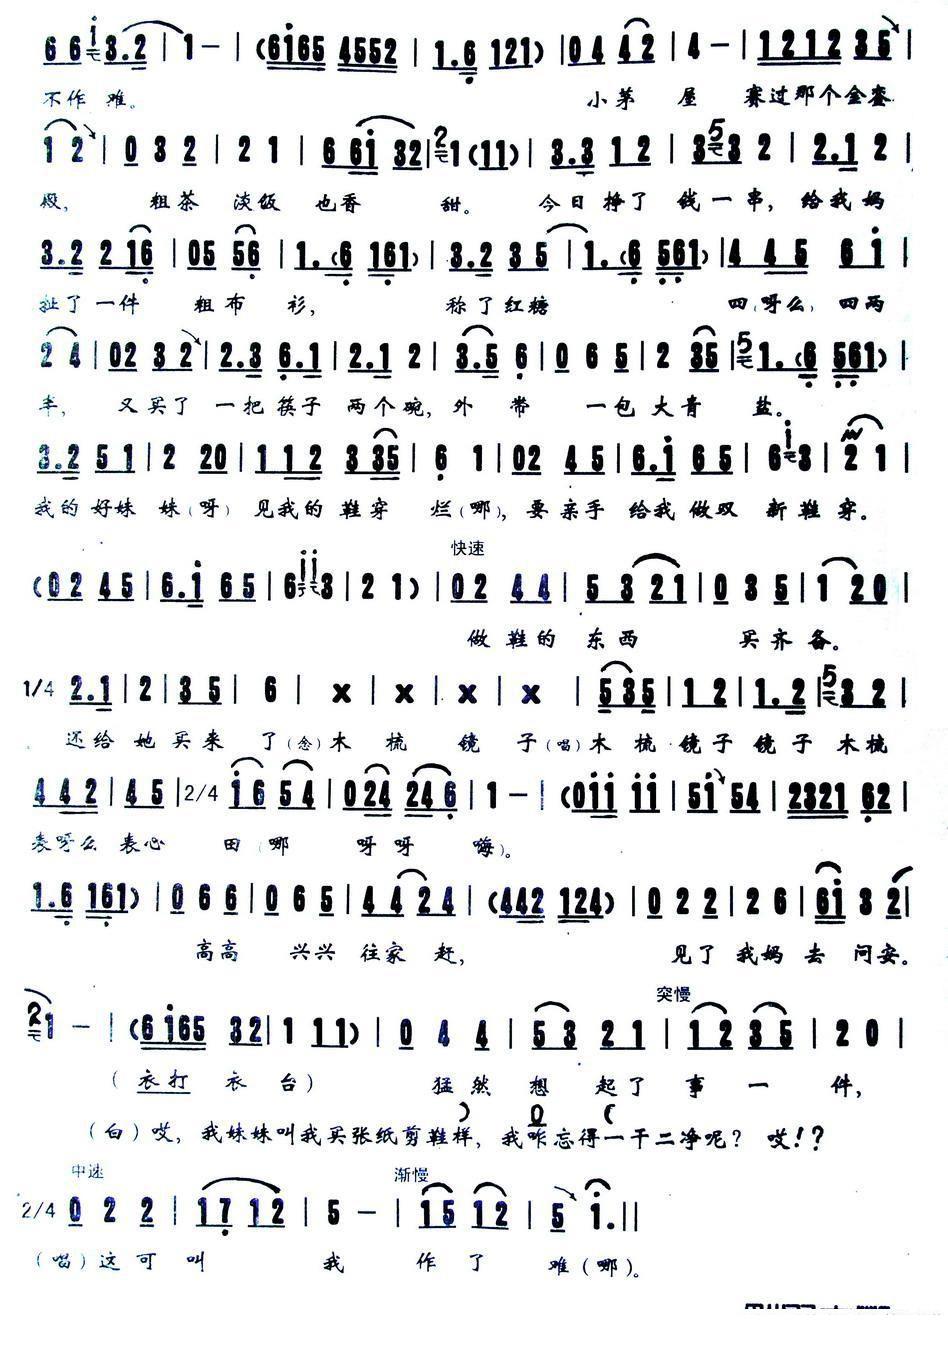 6 6 i 3.2 | 1 - | (6i65 4552 | 1.6 121) | 04 42 | 4 - | 1212 35 |
不作 难。 小茅 屋 赛过那个金銮
1 2 | 0 3 2 | 2 1 | 6 6i 32 | 2 1 (11) | 3.3 1 2 | 3 5 3 2 | 2.1 2 |
殿, 粗茶 淡饭 也香 甜。 今日 挣了 钱一串, 给我妈
3.2 2 16 | 05 56 | 1.(6 161) | 3.2 35 | 1.(6 561) | 4 45 6 i |
扯了一件 粗布 衫, 称了红糖 四(呀么)四两
2 4 | 02 3 2 | 2.3 6.1 | 2.1 2 | 3.5 6 | 0 6 5 | 2 35 | 5 1.(6 561) |
半, 又买了 一把筷子 两个碗, 外 带 一包大青 盐。
3.2 51 | 2 20 | 112 335 | 6 1 | 02 45 | 6.i 65 | 6 i 3 | 2 1 |
我的好妹 妹(呀) 见我的鞋穿 烂(哪), 要亲手 给我做双 新鞋穿。
快速
(02 45 | 6.i 65 | 6 ii 3 | 2 1) | 02 44 | 5 3 21 | 0 3 5 | 1 20 |
做鞋的 东西 买齐备。
1/4 2.1 | 2 | 35 | 6 | x | x | x | x | 535 | 12 | 1.2 | 5 32 |
还给她买来 了(念)木 梳 镜 子(唱)木 梳 镜子 镜子 木梳
442 | 45 | 2/4 i6 54 | 024 246 | 1 - | (0ii ii | 5i 54 | 2321 62 |
表呀么 表心 田(哪 呀呀 嗨)。
1.6 161) | 0 6 6 | 0 6 5 | 4 4 2 4 | (442 124) | 0 2 2 | 2 6 | 6i 3 2 |
高高 兴兴 往家 赶, 见了 我妈 去 问安。
突慢
2 1 - | (6i65 32 | 1 11) | 0 4 4 | 53 21 | 12 35 | 2 0 |
(衣打 衣 台) 猛然 想 起了 事 一 件,
(白)哎, 我妹妹叫我买张纸剪鞋样, 我咋忘得一干二净呢? 哎!?
中速 渐慢
2/4 0 2 2 | 17 12 | 5 - | 15 12 | 5 i. ||
(唱)这可 叫 我 作 了 难(哪)。